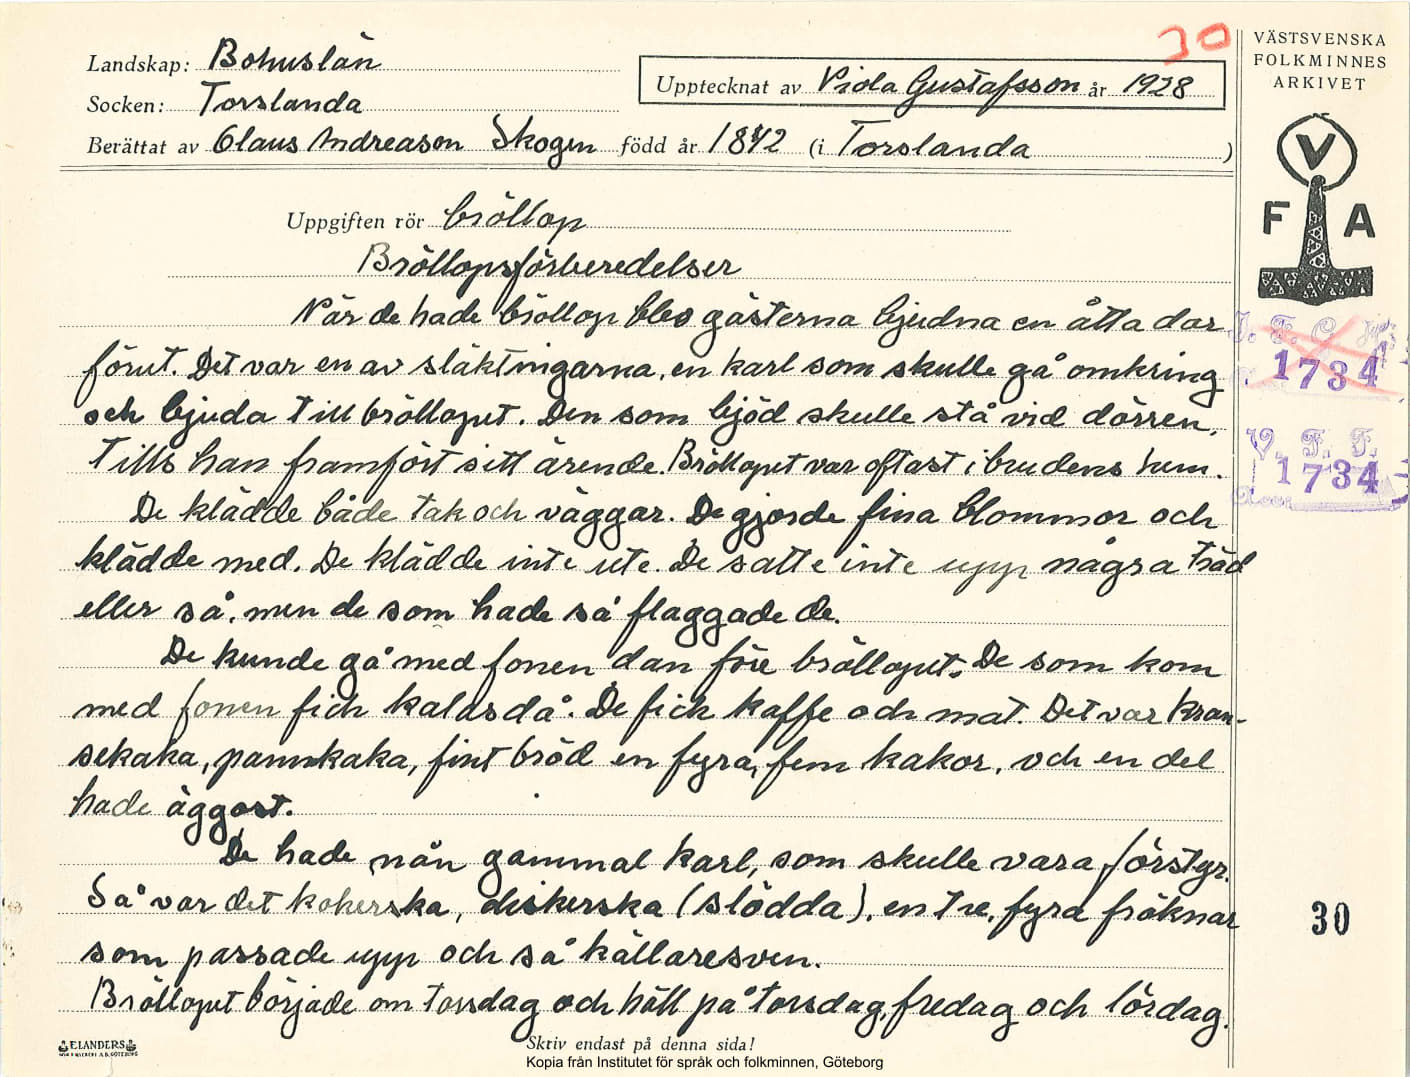 30
VÄSTSVENSKA
FOLKMINNES
ARKIVET
Landskap: Bohuslän
Upptecknat av Viola Gustafsson år 1928
Socken: Torslanda
Berättat av Olaus Andreason Skogen född år 1842 (i Torslanda )
V
F A
Uppgiften rör bröllop
Bröllopsförberedelser
När de hade bröllop blev gästerna bjudna en åtta dar
förut. Det var en av släktingarna, en karl som skulle gå omkring
och bjuda till bröllopet. Den som bjöd skulle stå vid dörren,
tills han framfört sitt ärende. Bröllopet var oftast i brudens hem.
De klädde både tak och väggar. De gjorde fina blommor och
klädde med. De klädde inte ute. De satte inte upp några träd
eller så, men de som hade så flaggade de.
De kunde gå med fonen dan före bröllopet. De som kom
med fonen fick kalas då. De fick kaffe och mat. Det var kran-
sekaka, pannkaka, fint bröd en fyra, fem kakor, och en del
hade äggost.
De hade nån gammal karl, som skulle vara förstyr.
Så var det kokerska, diskerska (slödda), en tre, fyra fröknar
som passade upp och så källaresven.
Bröllopet började om torsdag och höll på torsdag, fredag och lördag.
1734
V. F. F.
1734
30
ELANDERS
Skriv endast på denna sida!
Kopia från Institutet för språk och folkminnen, Göteborg